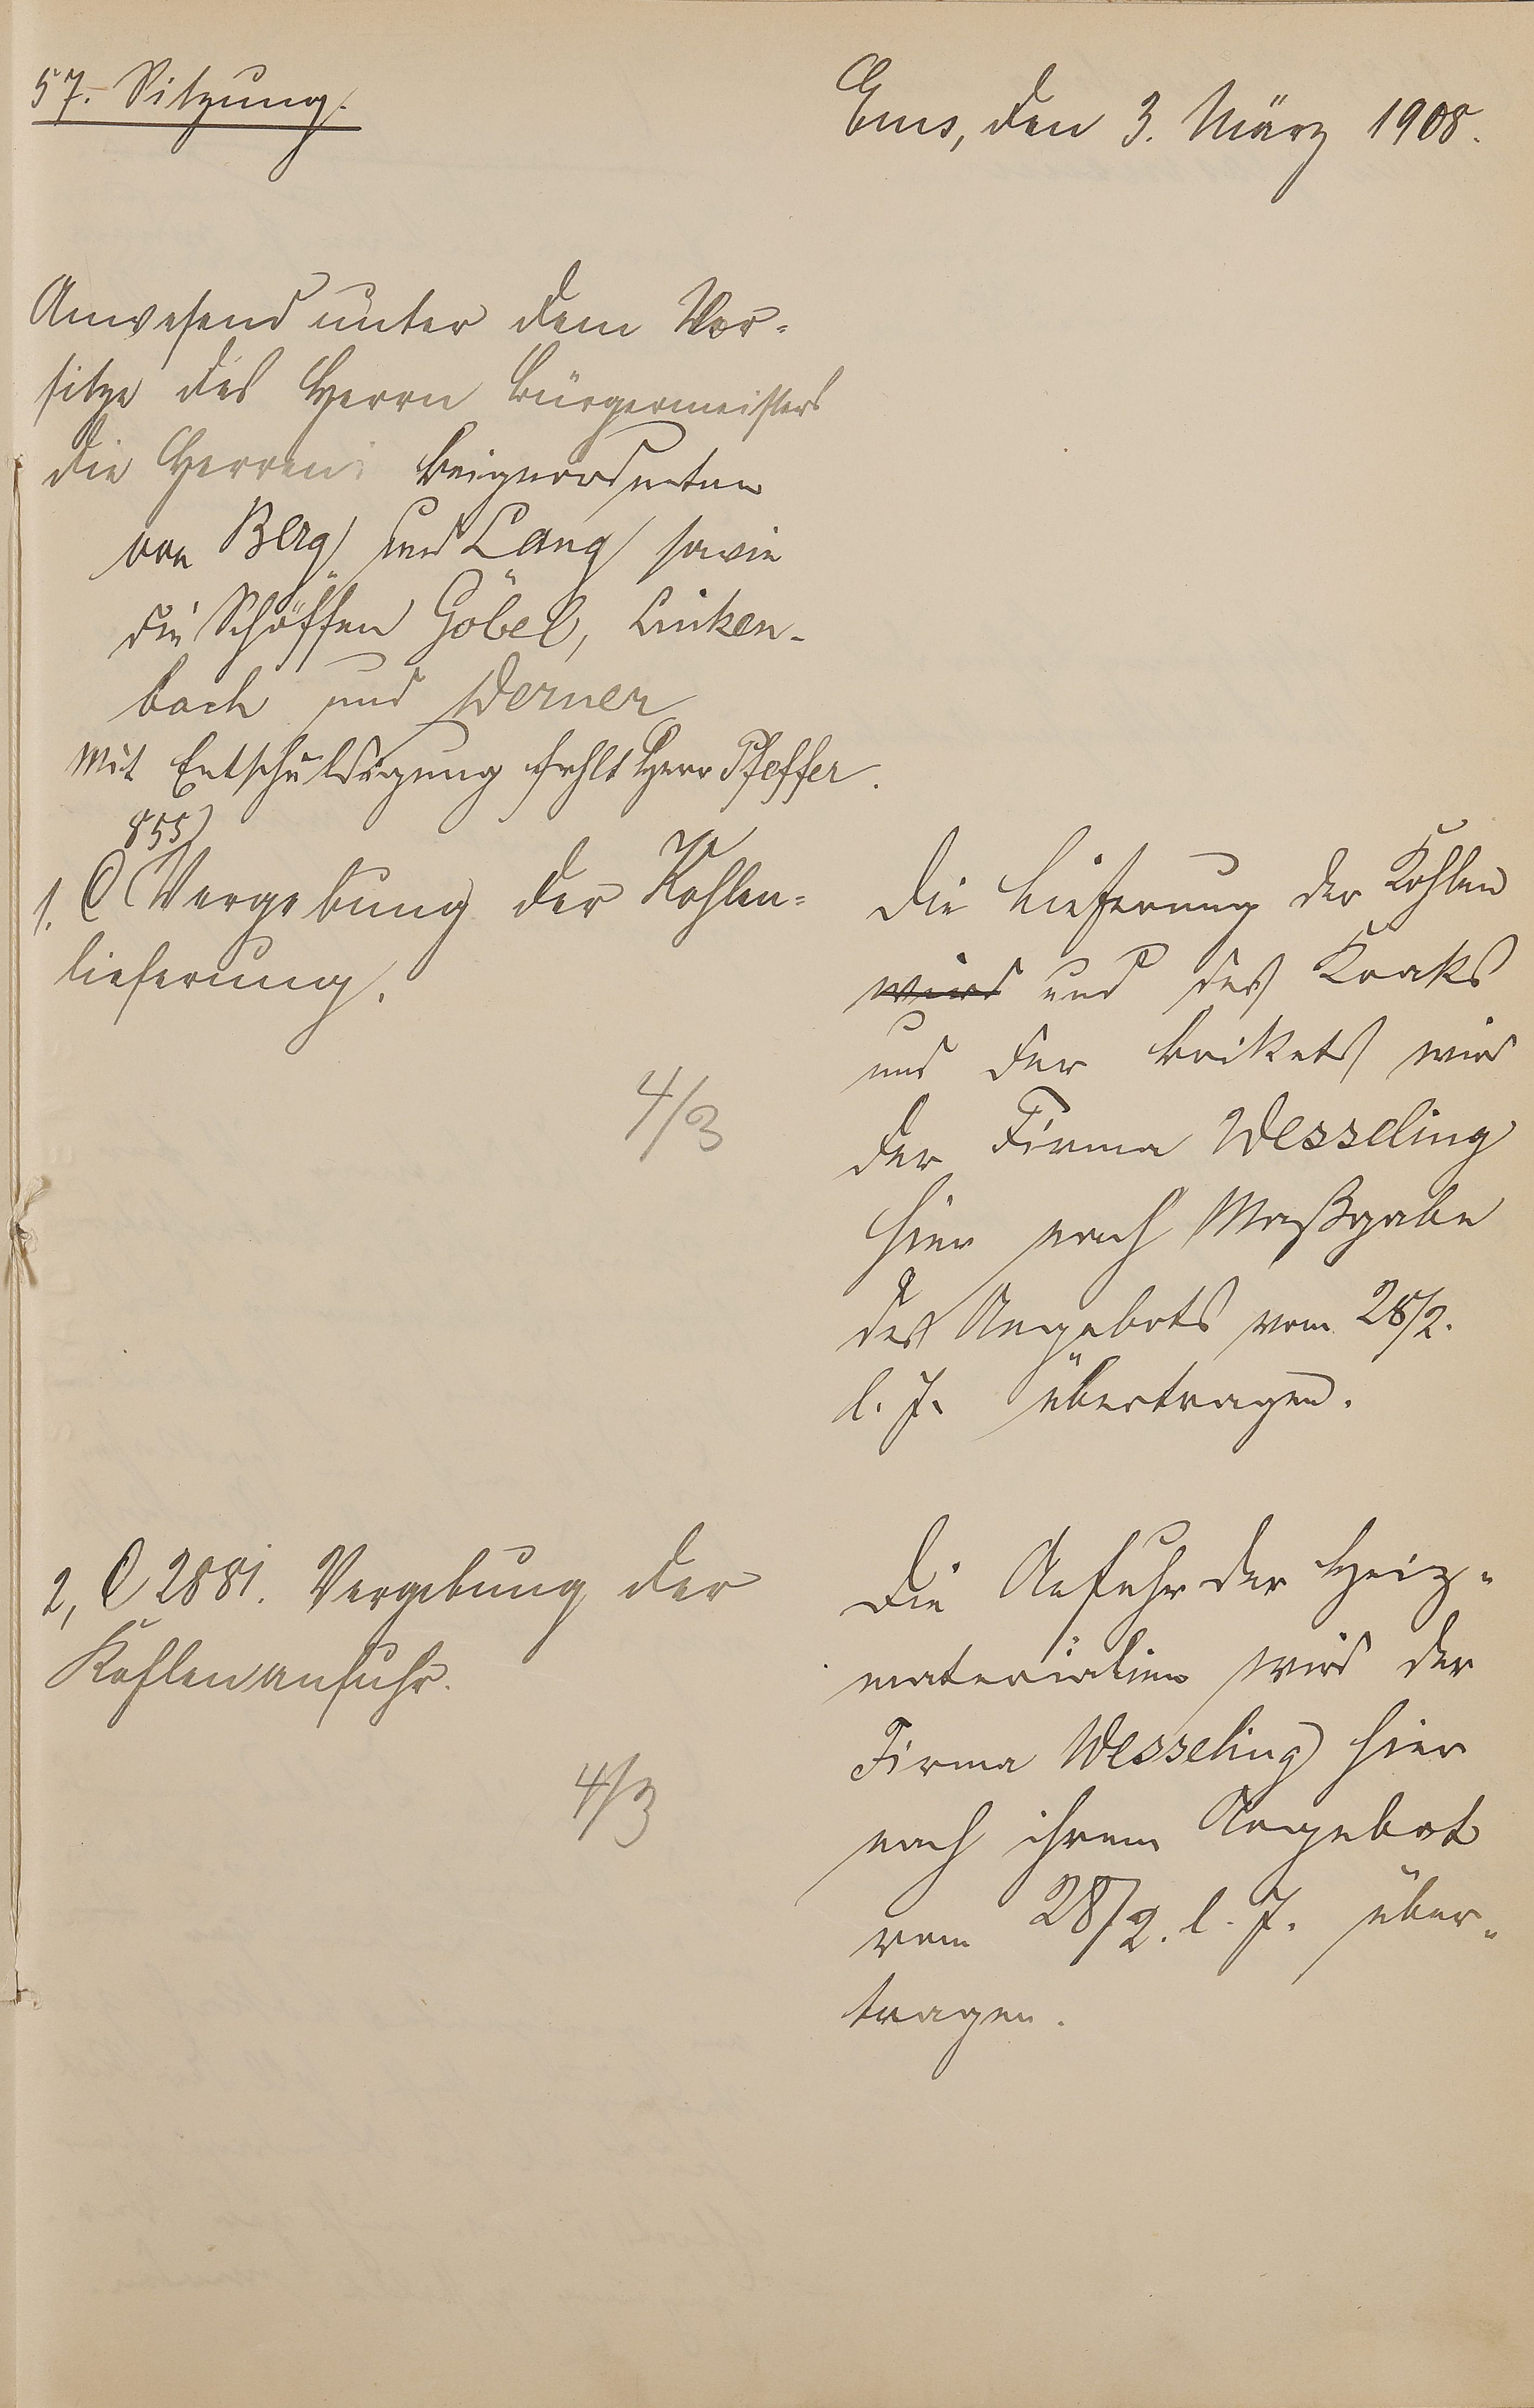 57. Sitzung.
Ems, den 3. März 1908.
Anwesend unter dem Vor-
sitze des Herrn Bürgermeisters
die Herren: Beigeordneten
von Berg und Lang sowie
die Schöffen Göbel, Linken-
bach und Werner
Mit Entschuldigung fehlt Herr Pfeffer.
855)
1. C Vergebung der Kohlen-
lieferung.
4/3
Die Lieferung der Kohlen
wird und des Koaks
und der Brikets wird
der Firma Wesseling
hier nach Maßgabe
des Angebots vom 28/2.
l. J. übertragen.
2, C 2881. Vergebung der
Kohlenanfuhr.
4/3
Die Anfuhr der Heiz-
materialien wird der
Firma Wesseling hier
nach ihrem Angebot
vom 28/2. l. J. über-
tragen.